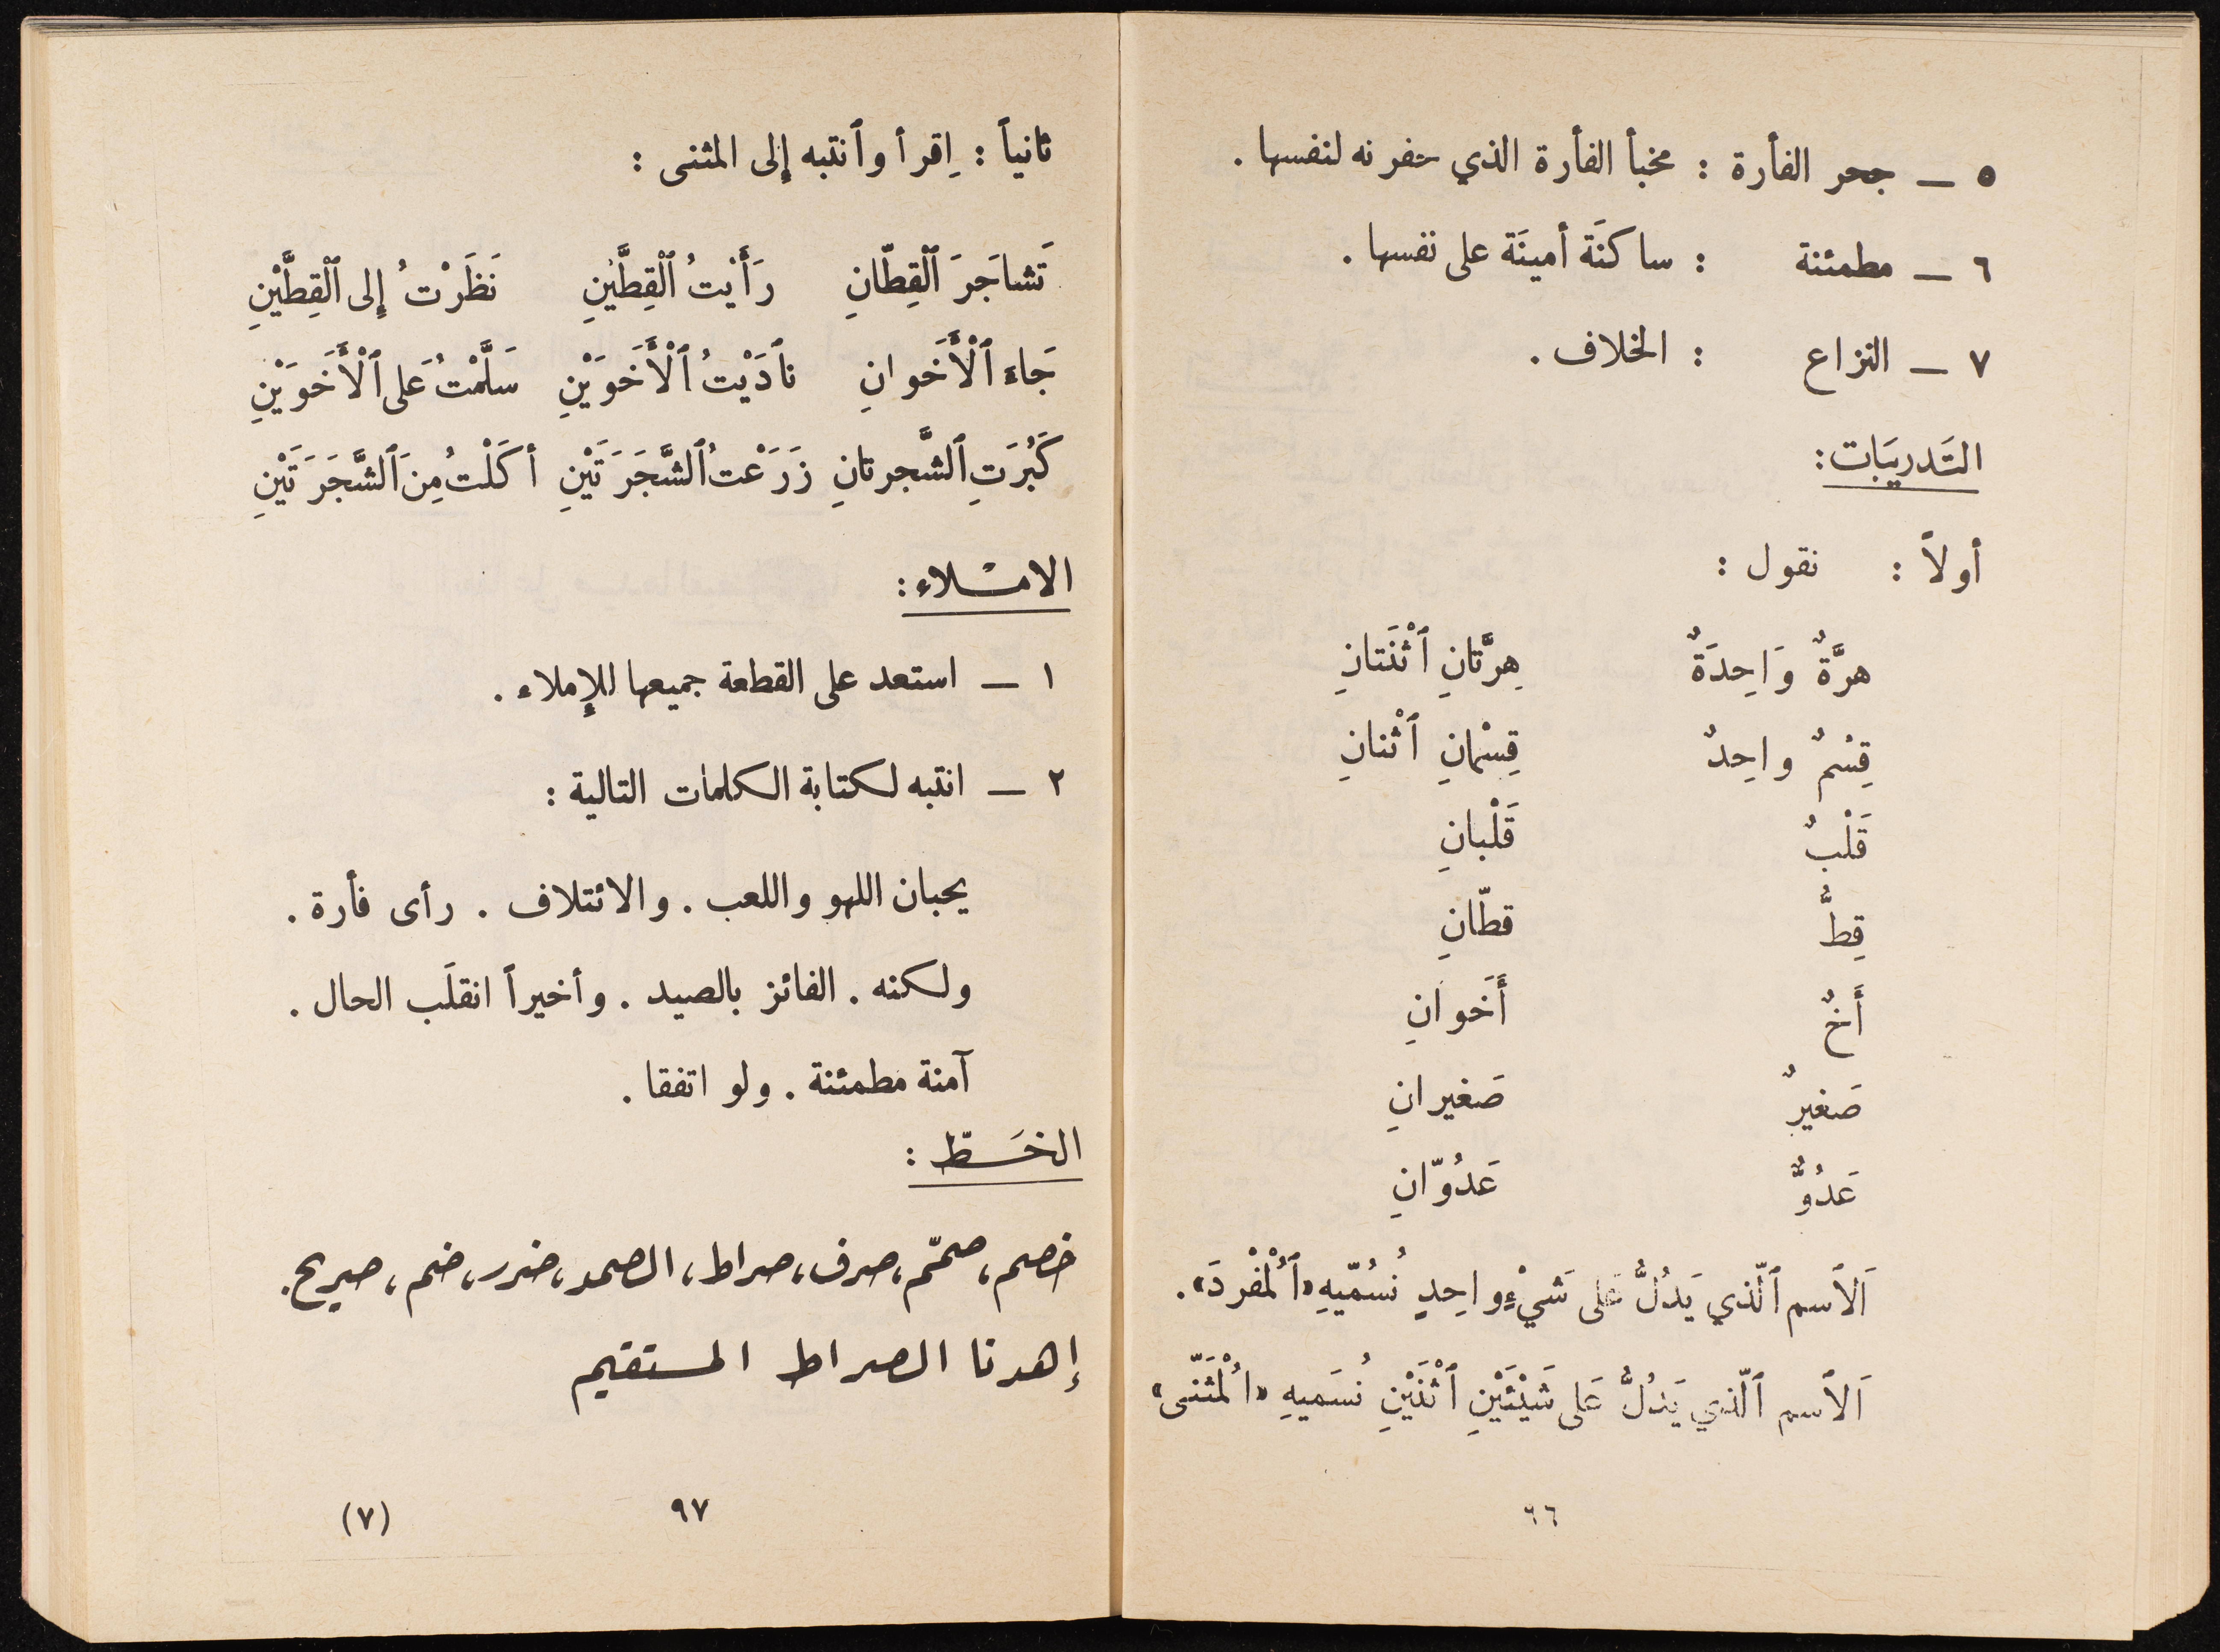 ٥ — جحر الفأرة : مخبأ الفأرة الذي حفرته لنفسها .
٦ — مطمئنة : ساكنَة أمينَة على نفسها .
٧ — النزاع : الخلاف .
التَدريبَات :
أولاً : نقول :
هرَّةٌ وَاحِدَةٌ هِرَّتانِ ٱثْنَتانِ
قِسْمٌ واحِدٌ قِسْمانِ ٱثْنانِ
قَلْبٌ قَلْبانِ
قِطٌّ قطّانِ
أَخٌ أَخَوانِ
صَغيرٌ صَغيرانِ
عَدُوٌّ عَدُوّانِ
اَلاَسم ٱلّذي يَدُلُّ عَلى شَيْءٍ واحِدٍ نُسُمّيهِ «ٱلْمُفْرَدَ» .
اَلاَسم ٱلّذي يَدُلُّ عَلى شَيْئَيْنِ ٱثْنَيْنِ نُسَميهِ «الْمُثَنّى»
٩٦
ثانياً : اِقرأ وٱنتبه إلى المثنى :
تَشاجَرَ ٱلْقِطّانِ رَأَيتُ ٱلْقِطَّيْنِ نَظَرْتُ إِلى ٱلْقِطَّيْنِ
جَاءَ ٱلْأَخَوانِ نادَيْتُ ٱلْأَخَوَيْنِ سَلَّمْتُ عَلى ٱلْأَخَوَيْنِ
كَبُرَتِ ٱلشَّجرتانِ زَرَعْتُ ٱلشَّجَرَتَيْنِ أكَلْتُ مِنَ ٱلشَّجَرَتَيْنِ
الامْلاء :
١ — استعد على القطعة جميعها للإملاء .
٢ — انتبه لكتابة الكلمات التالية :
يحبان اللهو واللعب . والائتلاف . رأى فأرة .
ولكنه . الفائز بالصيد . وأخيراً انقلَب الحال .
آمنة مطمئنة . ولو اتفقا .
الخَطّ :
خصم ، صمّم ، صرف ، صراط ، الصمد ، ضرر ، ضم ، صريح .
إهدنا الصراط المستقيم
٩٧
(٧)